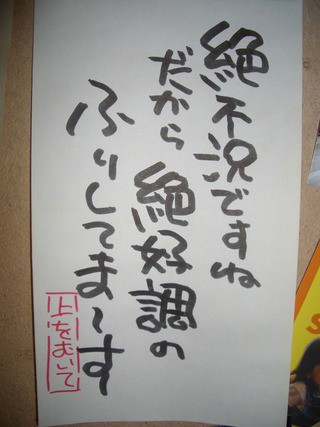 絶不況ですね
だから絶好調の
ふりしてま〜す
上をむいて